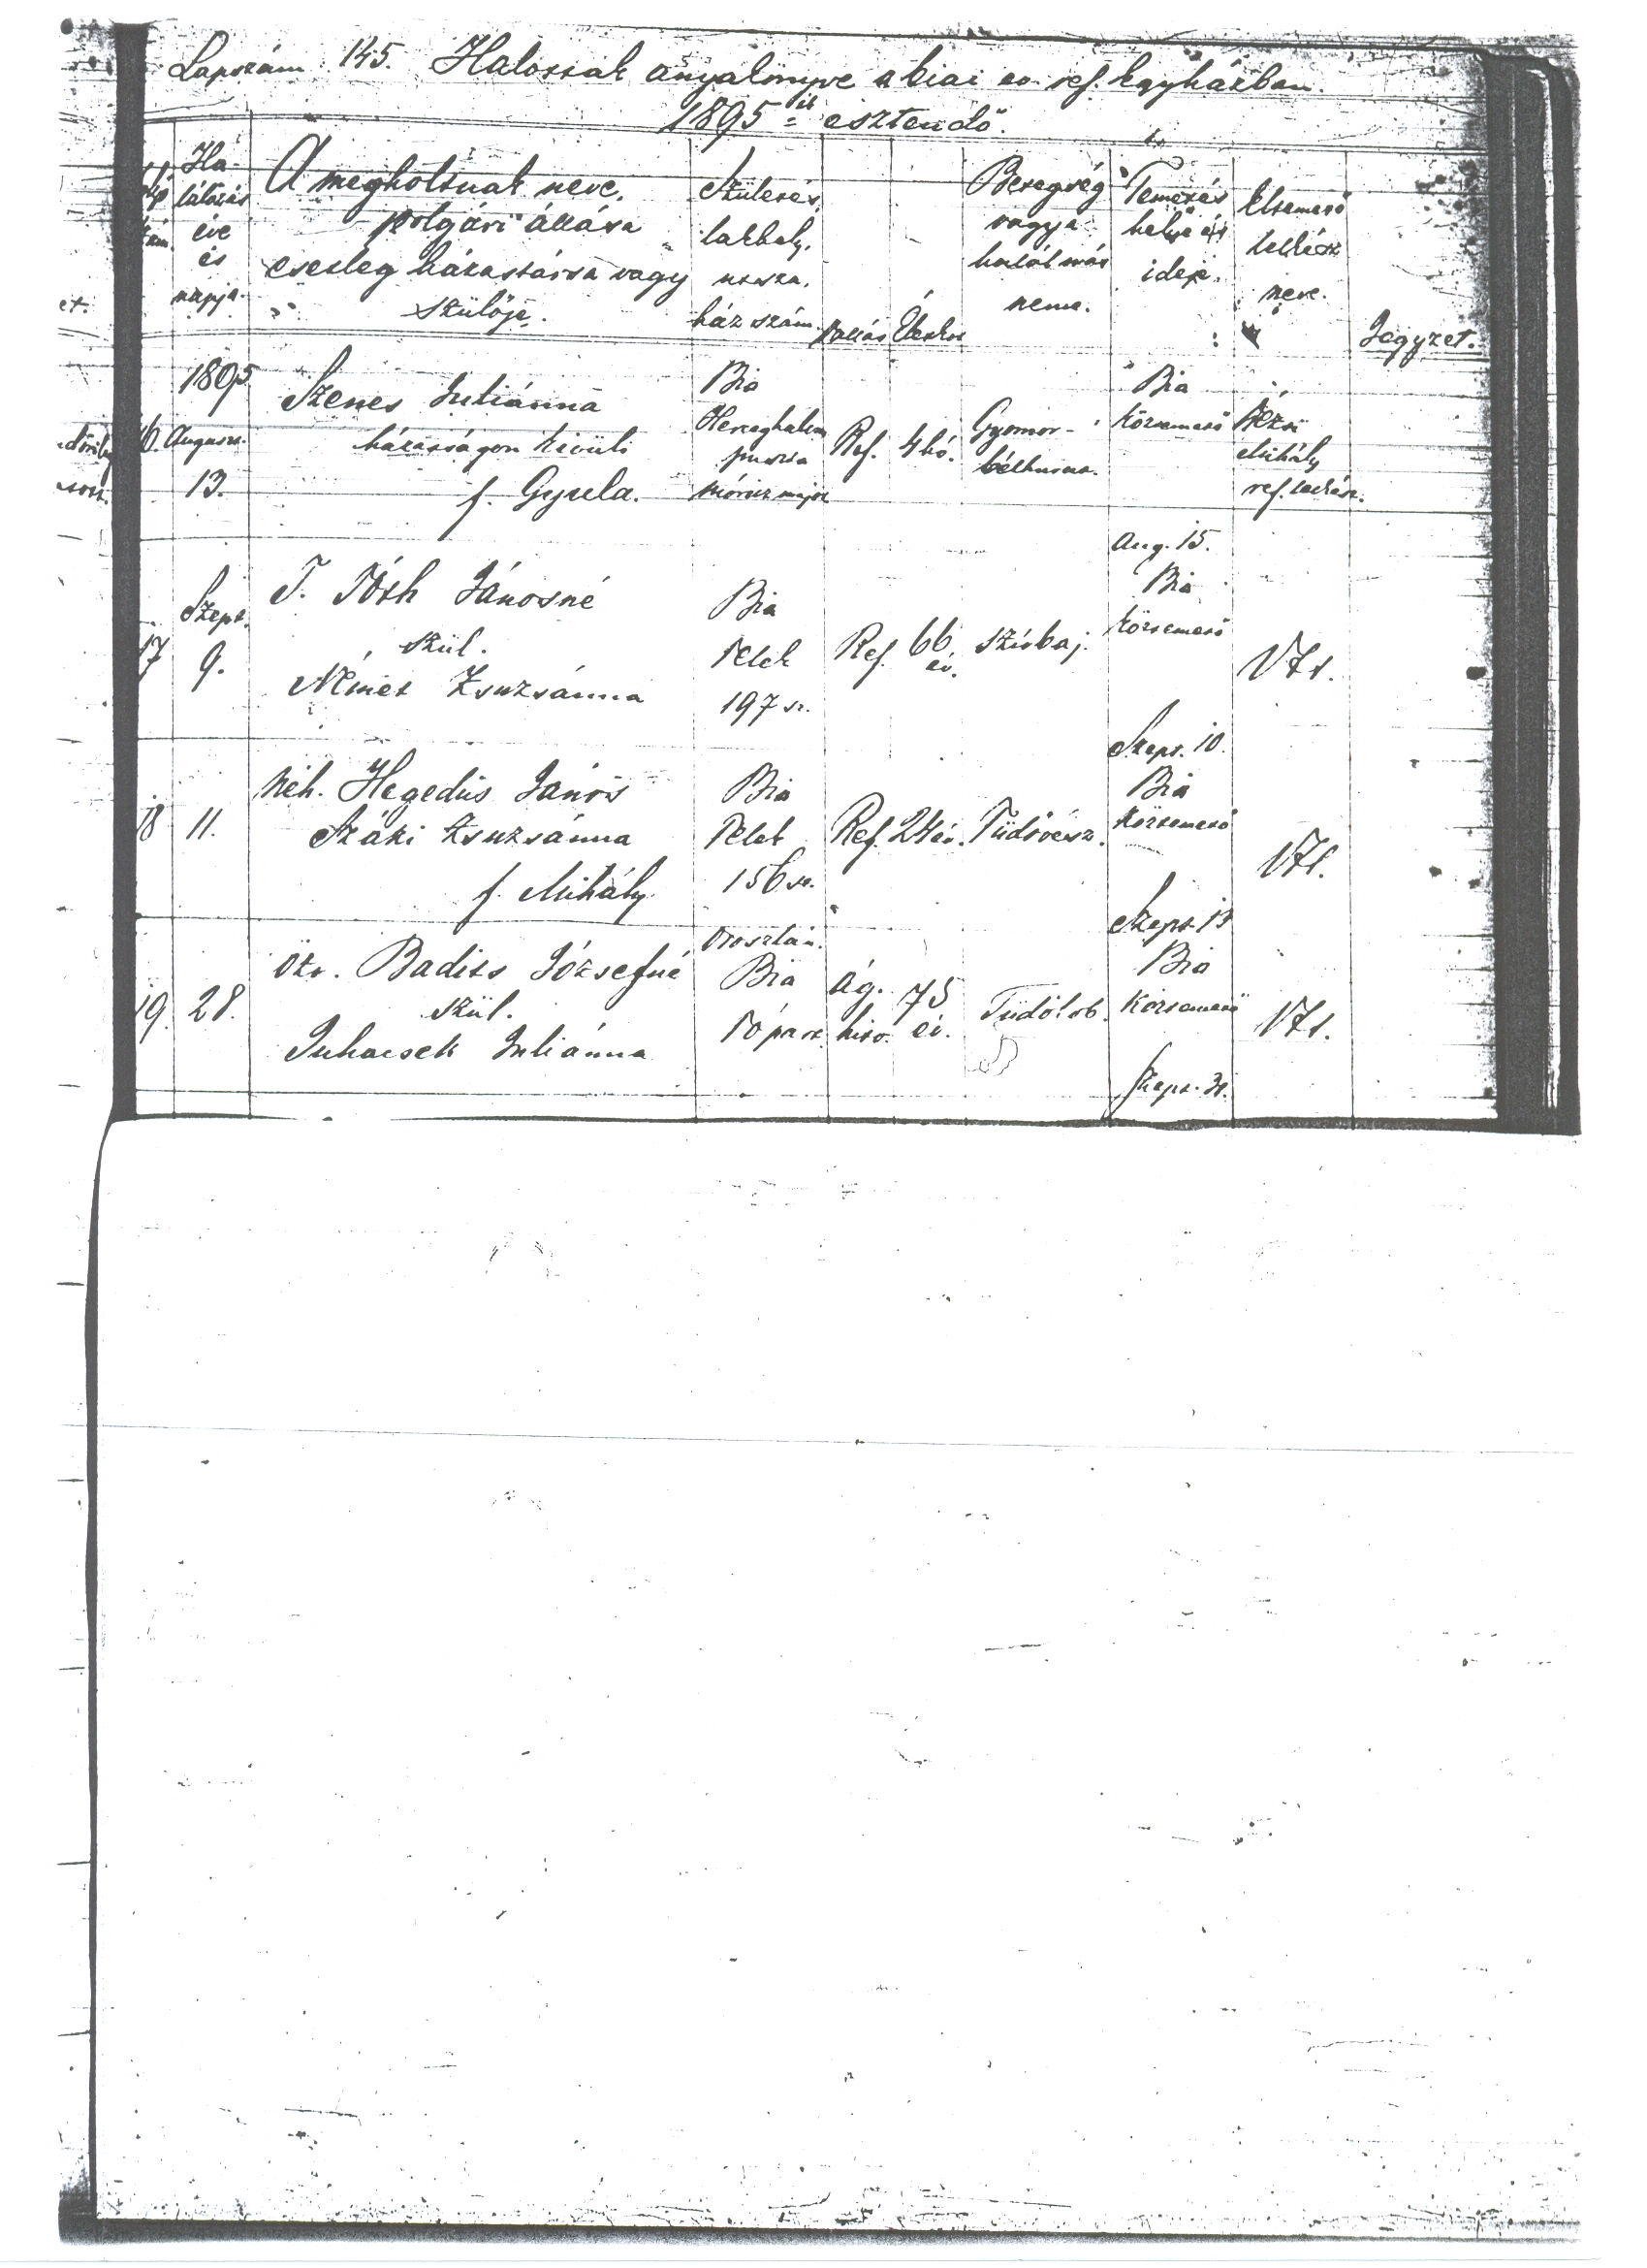 Lapszám 145. Halottak anyakönyve a biai ev. ref. egyházban.
1895 ik esztendő.
Ha-
lálozás
éve
és
napja.
A megholtnak neve,
polgári állása
esetleg házastársa vagy
szülője.
Születés,
lakhely,
utcza,
ház szám.
Vallás
Életkor
Betegség
vagy a
halál más
neme.
Temetés
helye és
ideje.
Eltemető
lelkész
neve.
Jegyzet.
1895
August.
13.
Szenes Juliánna
házasságon kivüli
f. Gyula.
Bia
Herceghalom
puszta
Móricz major
Ref.
4 hó.
Gyomor-
bélhurut.
Bia
köztemető
Aug. 15.
Mihály
ref. lelkész.
17
Szept.
9.
T. Tóth Jánosné
szül.
Német Zsuzsánna
Bia
Telek
197 sz.
Ref.
66
év.
Szívbaj.
Bia
köztemető
Szept. 10.
U. a.
18
11.
Néh. Hegedüs János
Száki Zsuzsánna
f. Mihály.
Bia
Telek
156 sz.
Ref.
24 év.
Tüdővész.
Bia
köztemető
Szept. 13
U. a.
19.
28.
Özv. Badits Józsefné
szül.
Juhacsek Juliánna
Oroszlán.
Bia
Tópart.
Ág.
hitv.
75
év.
Tüdőlob.
Bia
Köztemető
Szept. 30.
U. a.